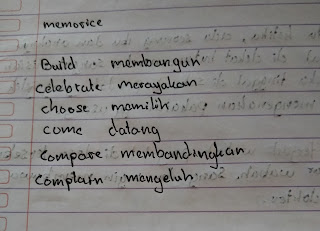 memorice
Build membangun
celebrate merayakan
choose mamilih
come datang
compare membandingkan
complain mengeluh